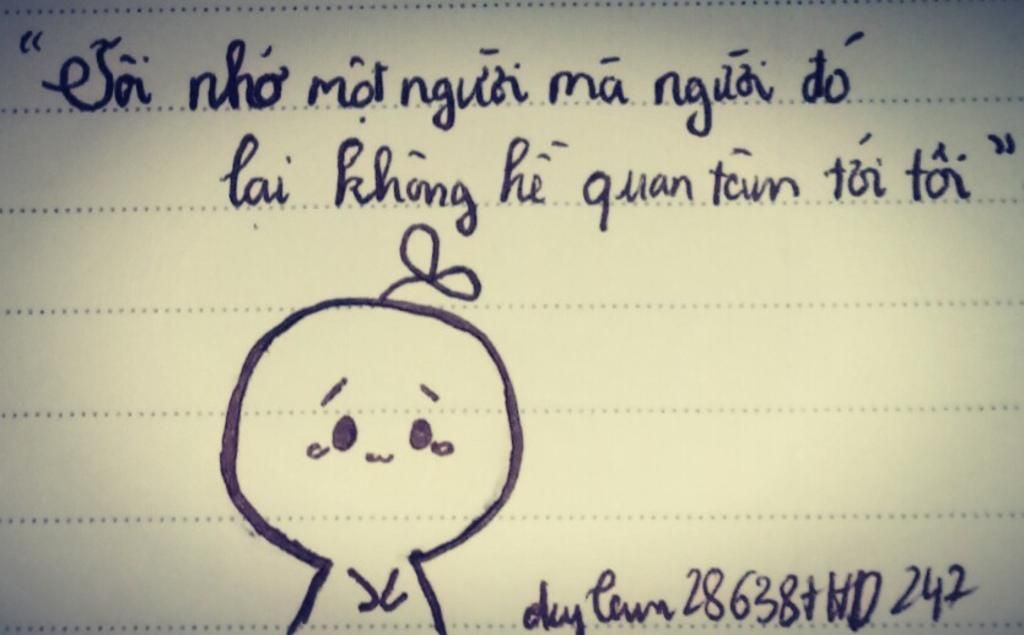 “Tôi nhớ một người mà người đó
lại không hề quan tâm tới tôi”
28638+HD 247